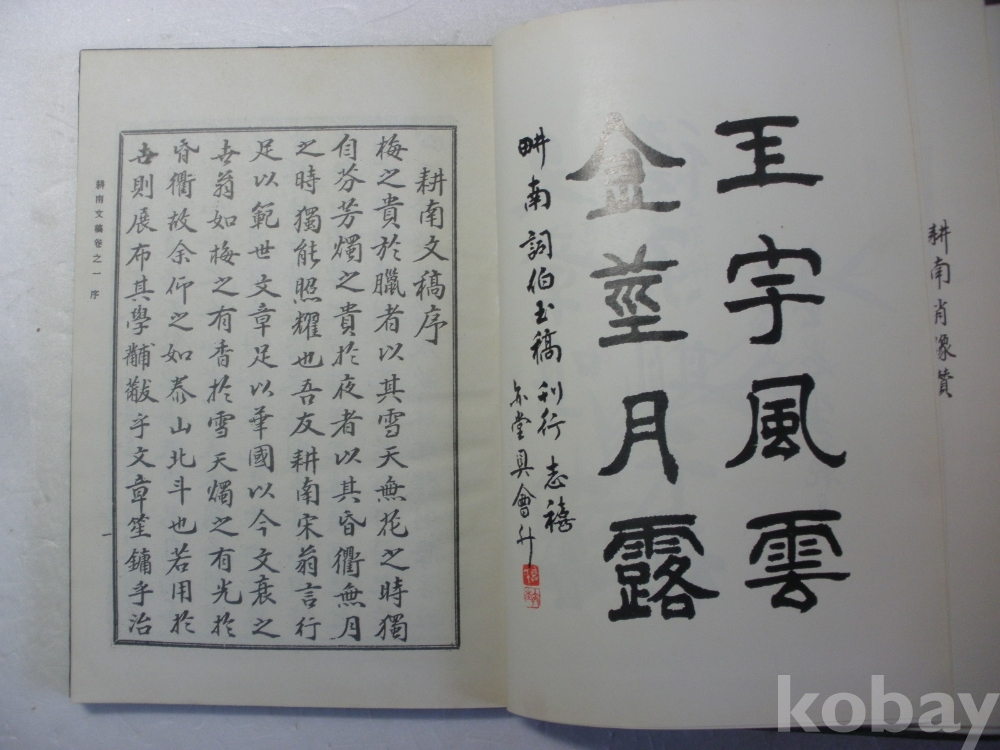 耕南肖像贊
玉字風雲
金莖月露
畊南詞伯玉稿刊行志禧
堂具會升
耕南文稿序
梅之貴於臘者以其雪天無花之時獨
自芬芳燭之貴於夜者以其昏衢無月
之時獨能照耀也吾友耕南宋翁言行
足以範世文章足以華國以今文衰之
世翁如梅之有香於雪天燭之有光於
昏衢故余仰之如泰山北斗也若用於
世則展布其學黼黻乎文章笙鏞乎治
耕南文稿卷之一 序
一
kobay